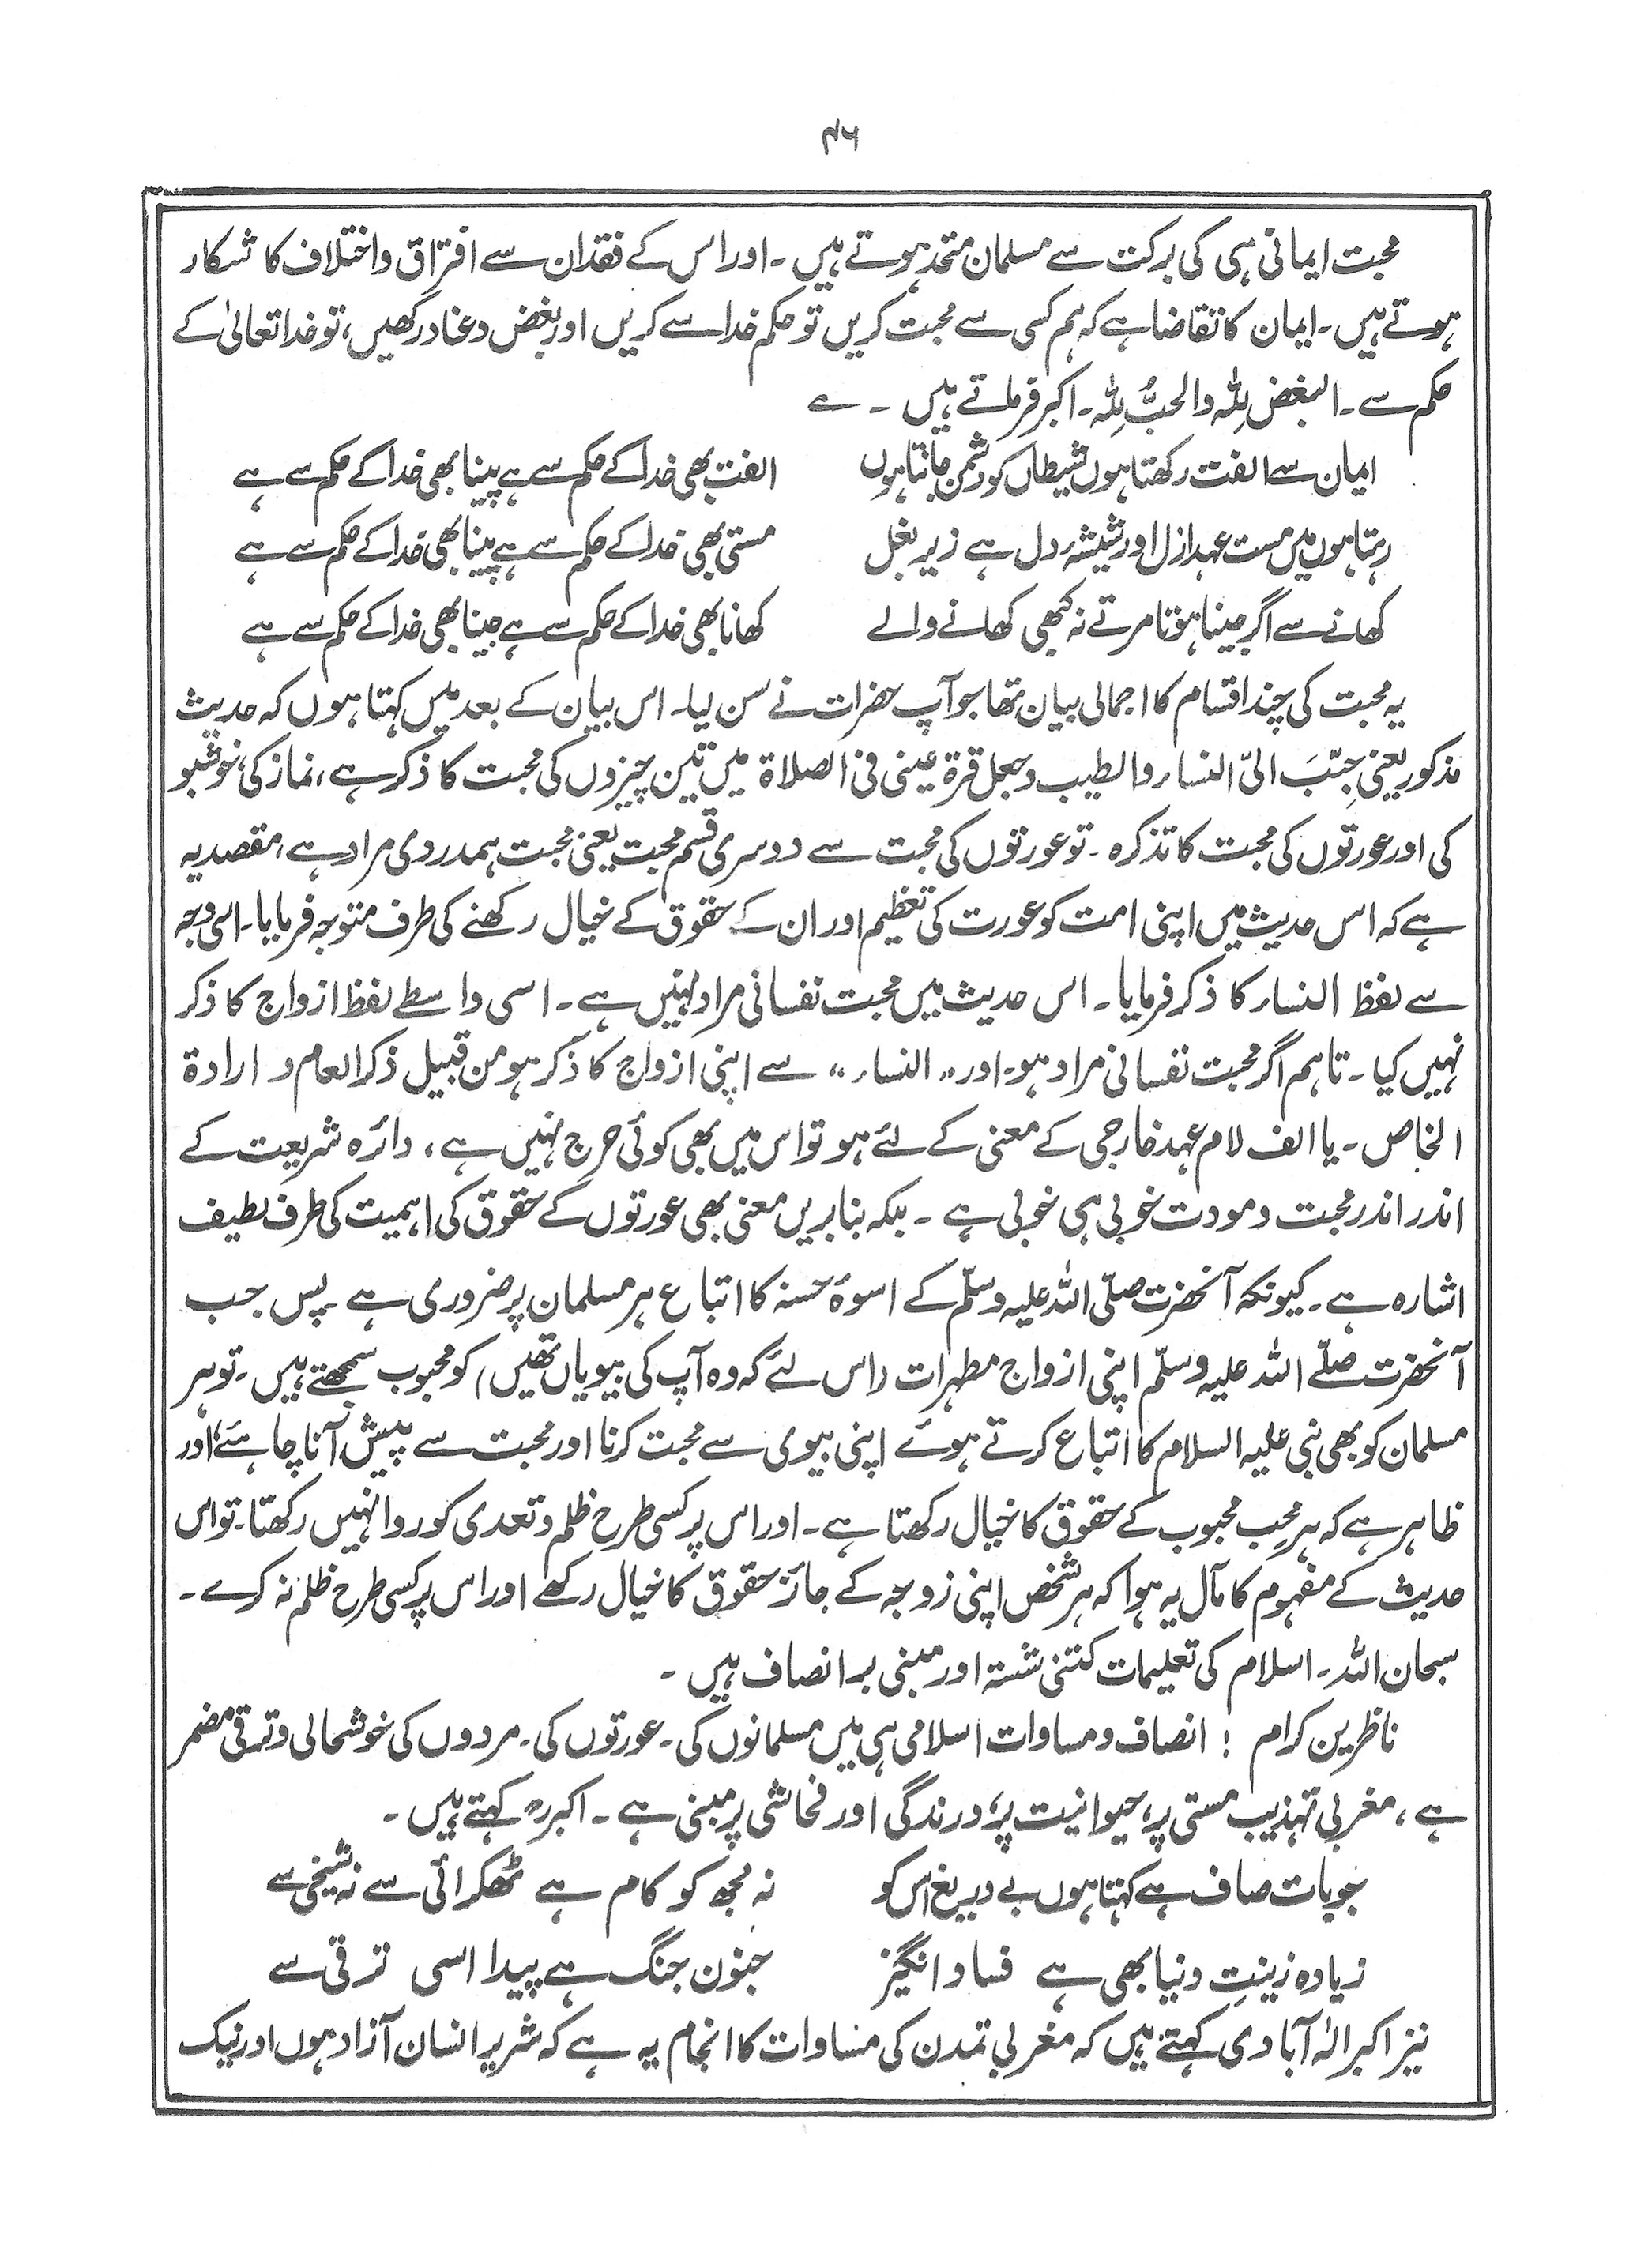 ۴۶
محبت ایمانی ہی کی برکت سے مسلمان متحد ہوتے ہیں ۔ اور اس کے فقدان سے افتراق و اختلاف کا شکار
ہوتے ہیں۔ ایمان کا تقاضا ہے کہ ہم کسی سے محبت کریں تو حکم خدا سے کریں اور بغض و عناد رکھیں، تو خدا تعالیٰ کے
حکم سے ۔ البغض لِلّٰہ والحبُّ لِلّٰہ۔ اکبر فرماتے ہیں ۔ ؎
ایمان سے الفت رکھتا ہوں شیطاں کو دشمن جانتا ہوں الفت بھی خدا کے حکم سے ہے پینا بھی خدا کے حکم سے ہے
رہتا ہوں میں مست عہد ازل اور شیشۂ دل ہے زیر بغل مستی بھی خدا کے حکم سے ہے پینا بھی خدا کے حکم سے ہے
کھانے سے اگر جینا ہوتا مرتے نہ کبھی کھانے والے کھانا بھی خدا کے حکم سے ہے جینا بھی خدا کے حکم سے ہے
یہ محبت کی چند اقسام کا اجمالی بیان تھا جو آپ حضرات نے سن لیا۔ اس بیان کے بعد میں کہتا ہوں کہ حدیث
مذکور یعنی حِبّبَ الیّ النساء والطیب وجعل قرۃ عینی فی الصلاۃ میں تین چیزوں کی محبت کا ذکر ہے، نماز کی، خوشبو
کی اور عورتوں کی محبت کا تذکرہ ۔ تو عورتوں کی محبت سے دوسری قسم محبت یعنی محبت ہمدردی مراد ہے، مقصد یہ
ہے کہ اس حدیث میں اپنی امت کو عورت کی تعظیم اور ان کے حقوق کے خیال رکھنے کی طرف متوجہ فرمایا۔ اسی وجہ
سے لفظ النساء کا ذکر فرمایا ۔ اس حدیث میں محبت نفسانی مراد نہیں ہے ۔ اسی واسطے لفظ ازواج کا ذکر
نہیں کیا ۔ تاہم اگر محبت نفسانی مراد ہو۔ اور ،، النساء ،، سے اپنی ازواج کا ذکر ہو من قبیل ذکر العام و ارادۃ
الخاص ۔ یا الف لام عہد خارجی کے معنی کے لئے ہو تو اس میں بھی کوئی حرج نہیں ہے، دائرہ شریعت کے
اندر اندر محبت و مودت خوبی ہی خوبی ہے ۔ بلکہ بنابریں معنی بھی عورتوں کے حقوق کی اہمیت کی طرف لطیف
اشارہ ہے ۔ کیونکہ آنحضرت صلّی اللہ علیہ وسلّم کے اسوۂ حسنہ کا اتباع ہر مسلمان پر ضروری ہے ۔ پس جب
آنحضرت صلّے اللہ علیہ وسلّم اپنی ازواج مطہرات (اس لئے کہ وہ آپ کی بیویاں تھیں) کو محبوب سمجھتے ہیں۔ تو ہر
مسلمان کو بھی نبی علیہ السلام کا اتباع کرتے ہوئے اپنی بیوی سے محبت کرنا اور محبت سے پیش آنا چاہئے، اور
ظاہر ہے کہ ہر محب محبوب کے حقوق کا خیال رکھتا ہے ۔ اور اس پر کسی طرح ظلم و تعدی کو روا نہیں رکھتا۔ تو اس
حدیث کے مفہوم کا مآل یہ ہوا کہ ہر شخص اپنی زوجہ کے جائز حقوق کا خیال رکھے اور اس پر کسی طرح ظلم نہ کرے ۔
سبحان اللہ ۔ اسلام کی تعلیمات کتنی شستہ اور مبنی بر انصاف ہیں ۔
ناظرین کرام ! انصاف و مساوات اسلامی ہی میں مسلمانوں کی ۔ عورتوں کی ۔ مردوں کی خوشحالی و ترقی مضمر
ہے ، مغربی تہذیب مستی پر، حیوانیت پر، درندگی اور فحاشی پر مبنی ہے ۔ اکبرؒ کہتے ہیں ۔
جو بات صاف ہے کہتا ہوں بے دریغ اس کو نہ مجھ کو کام ہے ٹھکرائی سے نہ شیخی سے
زیادہ زینتِ دنیا بھی ہے فساد انگیز جنون جنگ ہے پیدا اسی ترقی سے
نیز اکبر الٰہ آبادی کہتے ہیں کہ مغربی تمدن کی مساوات کا انجام یہ ہے کہ شریر انسان آزاد ہوں اور نیک